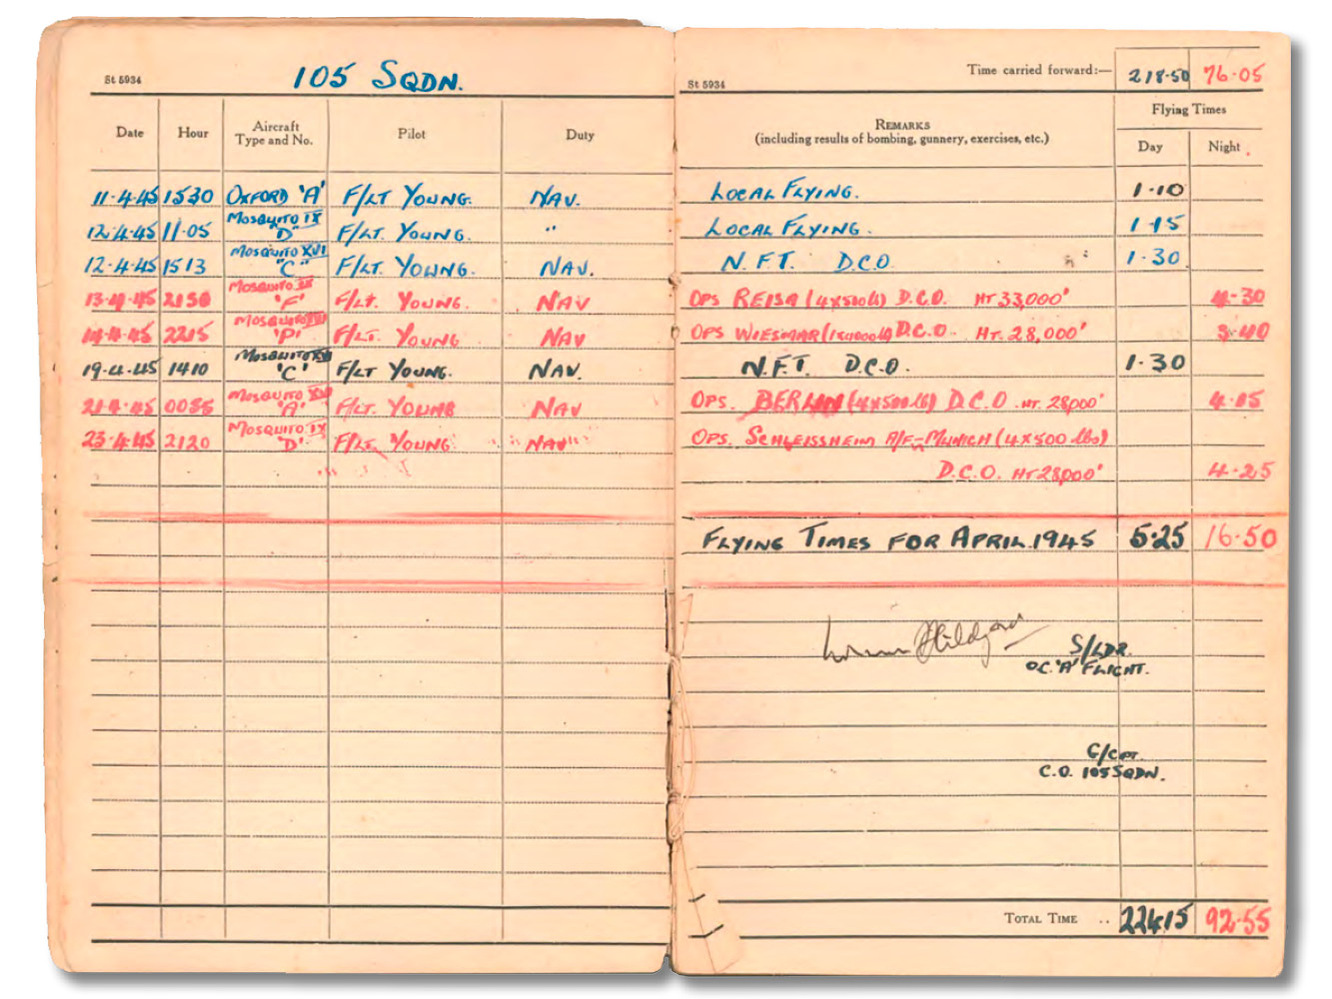 St 5934
105 SQDN.
St 5934
Time carried forward:— 218·50 76·05
Date Hour Aircraft Type and No. Pilot Duty
REMARKS
(including results of bombing, gunnery, exercises, etc.)
Flying Times
Day Night
11·4·45 1530 OXFORD 'A' F/LT YOUNG. NAV. LOCAL FLYING. 1·10
12·4·45 11·05 MOSQUITO IX 'D' F/LT. YOUNG. " LOCAL FLYING. 1·15
12·4·45 1513 MOSQUITO XVI "C" F/LT. YOUNG. NAV. N.F.T. D.C.O 1·30
13·4·45 MOSQUITO IX 'F' F/LT. YOUNG. NAV OPS REISA (4x500lb) D.C.O. HT 33,000' 4·30
14·4·45 2215 MOSQUITO 'P' F/LT. YOUNG NAV OPS WIESMAR D.C.O. HT. 28,000' 3·40
19·4·45 1410 MOSQUITO 'C' F/LT YOUNG. NAV. N.F.T. D.C.O. 1·30
21·4·45 MOSQUITO XVI 'A' F/LT. YOUNG NAV OPS. BERLIN (4x500lb) D.C.O. HT. 28,000' 4·15
23·4·45 2120 MOSQUITO IX 'D' F/LT. YOUNG NAV OPS. SCHLEISSHEIM A/F-MUNICH (4x500 lbs)
D.C.O. HT 28,000' 4·25
FLYING TIMES FOR APRIL 1945 5·25 16·50
S/LDR.
O.C. 'A' FLIGHT.
G/CPT.
C.O. 105 SQDN.
TOTAL TIME .. 224·15 92·55